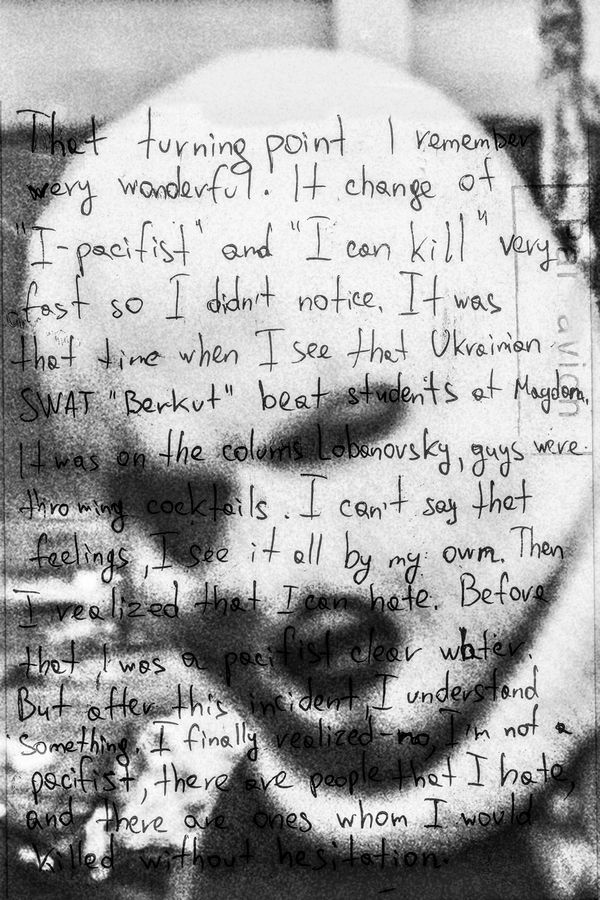 That turning point I remember
wery wonderful. It change of
"I-pacifist" and "I can kill" very
fast so I didn't notice. It was
that time when I see that Ukrainian
SWAT "Berkut" beat students at Maydan.
It was on the colums Lobanovsky, guys were
throwing cocktails. I can't say that
feelings, I see it all by my own. Then
I realized that I can hate. Before
that I was a pacifist clear water.
But after this incident, I understand
something. I finally realized-no, I'm not a
pacifist, there are people that I hate,
and there are ones whom I would
killed without hesitation.
Par avion